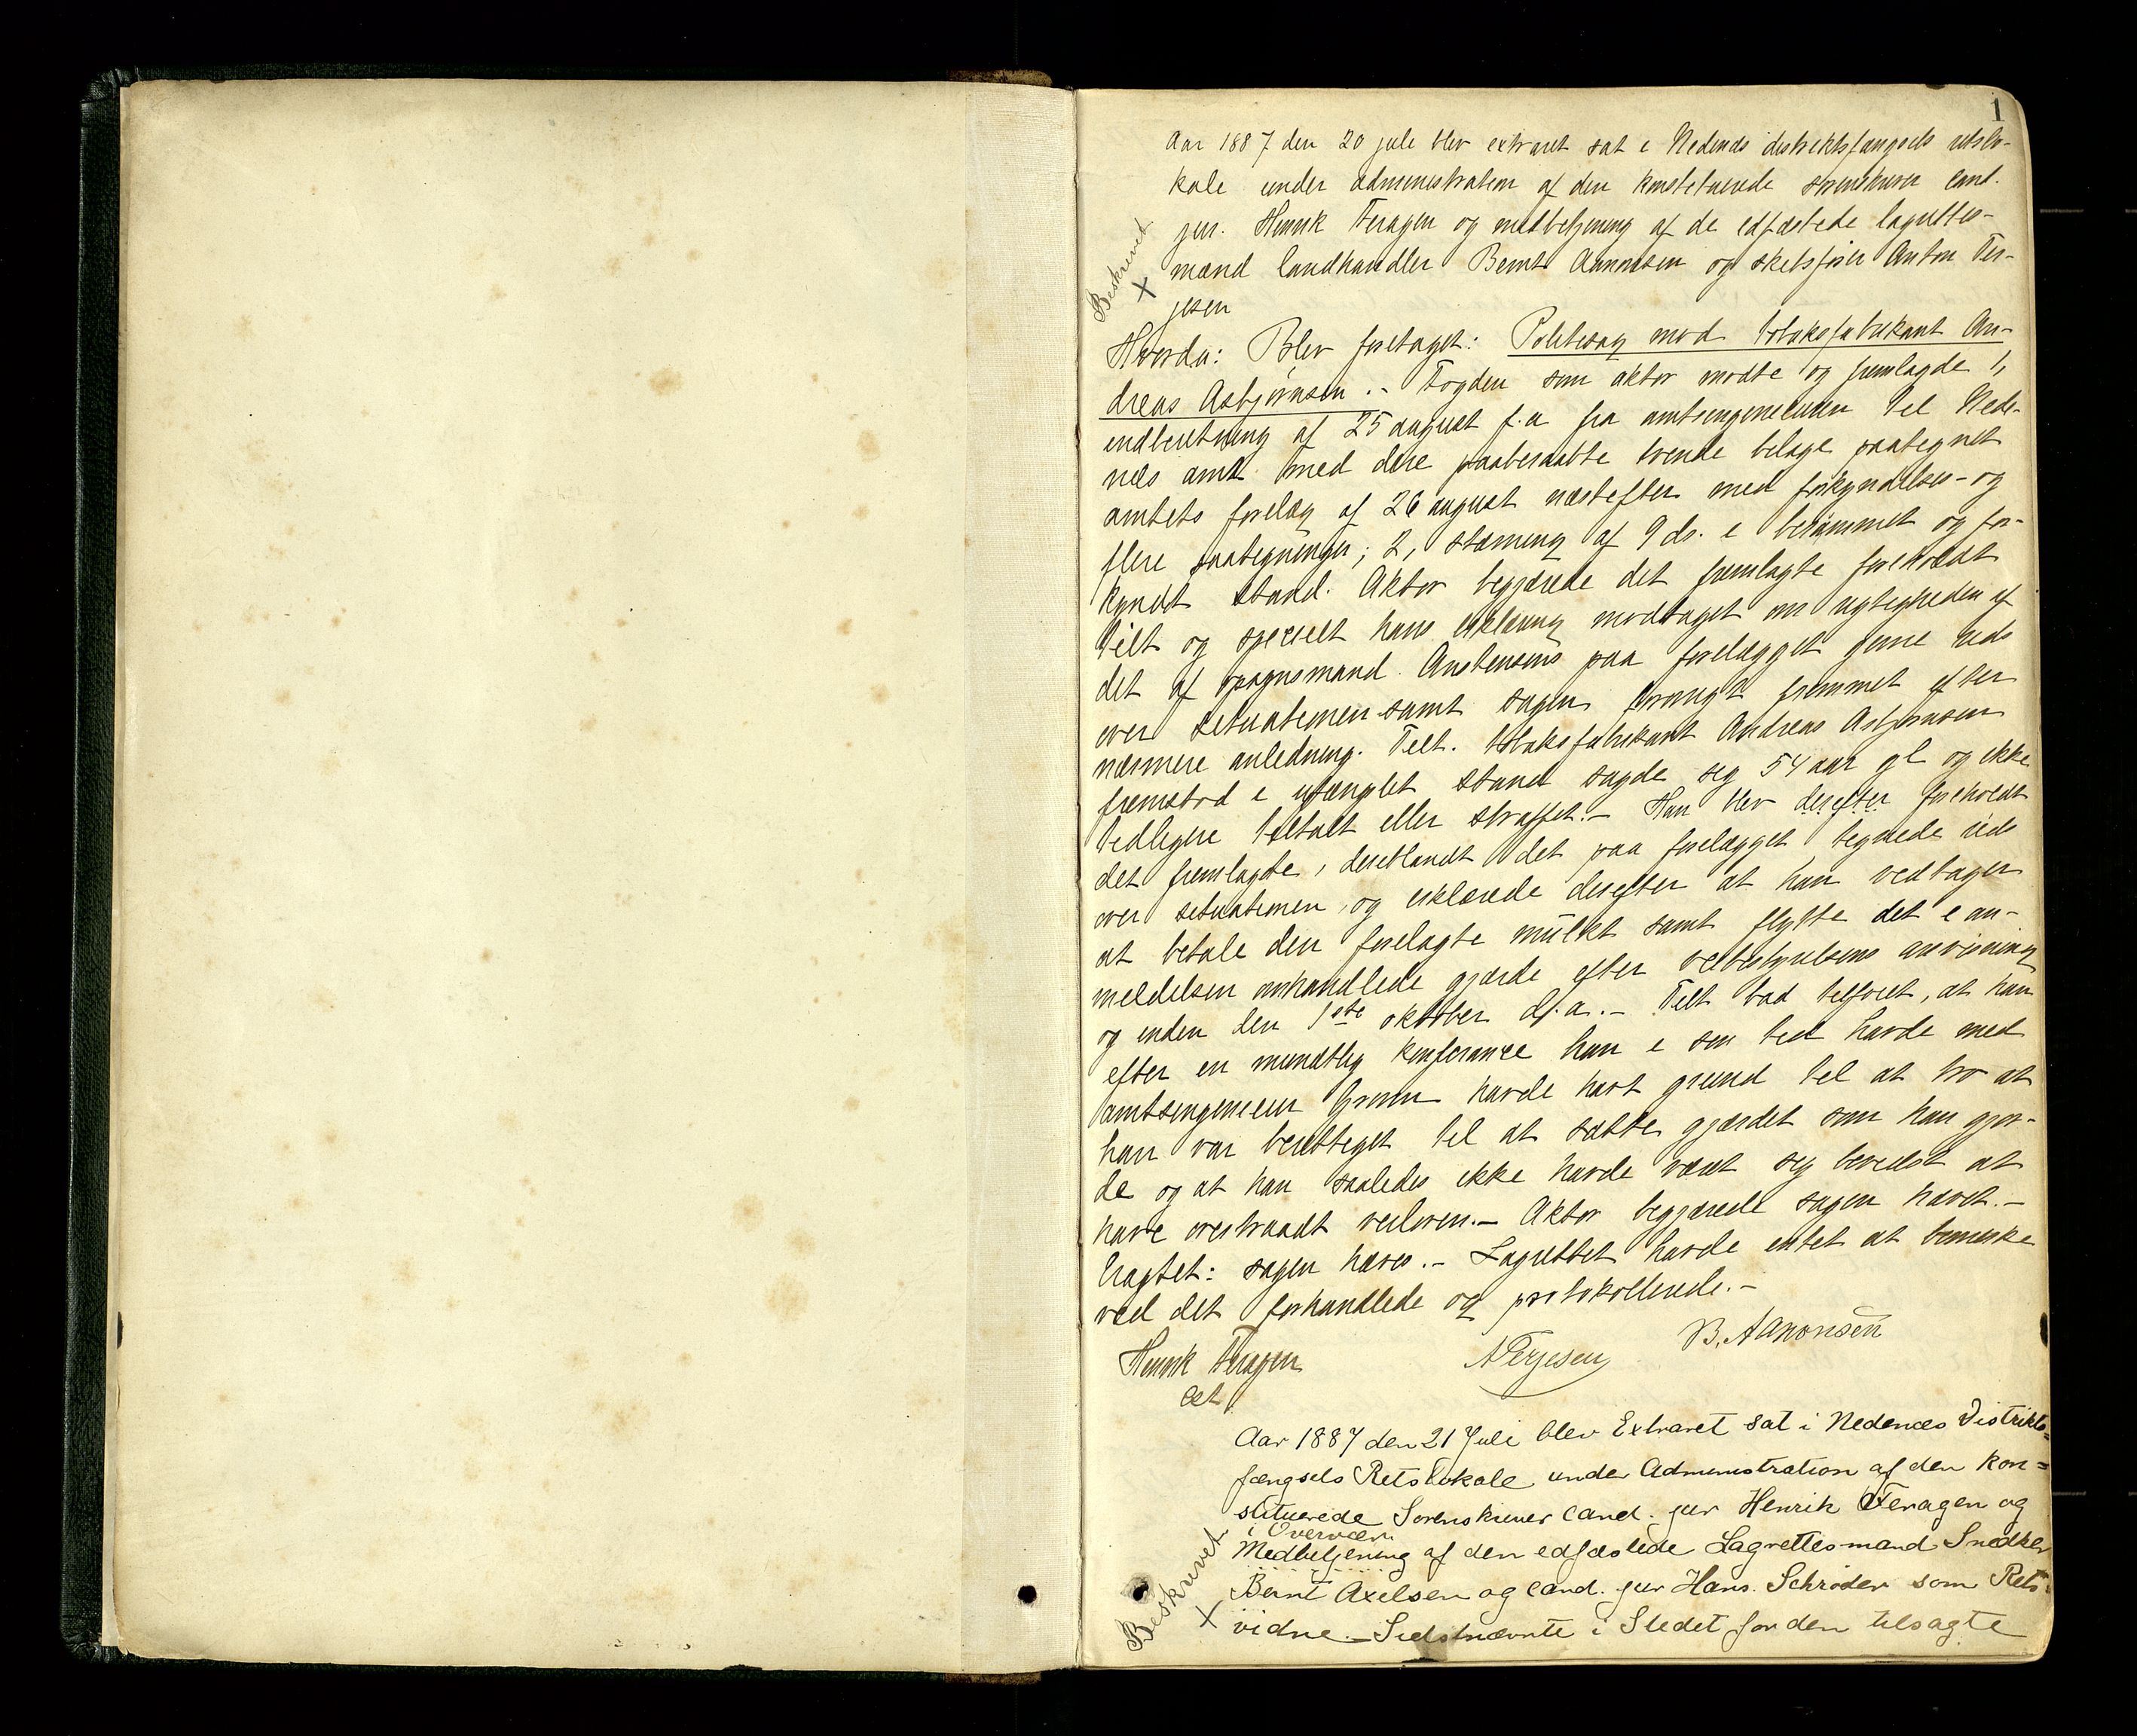 1
Aar 1887 den 20 juli blev extraret sat i Nedenæs distriktsfængsels retslo-
kale under administration af den konstituerede sorenskriver cand.
jur. Henrik Feragen og medbetjening af de edfæstede lagrettes-
mænd landhandler Bernt Aanonsen og skibsfører Anton Ter-
jesen
Beskrevet
X
Hvorda: Blev foretaget: Politisag mod tobaksfabrikant An-
dreas Asbjørnsen.- Fogden som aktor mødte og fremlagde 1,
indberetning af 25 august f.a. fra amtsingeniøren til Nede-
næs amt med dere paaberaabte trende bilage paategnet
amtets forelæg af 26 august næstefter med forkyndelses- og
flere paategninger; 2, stævning af 9 ds. i berammet og for-
kyndt stand. Aktor begjærede det fremlagte foreholdt
tilt. og specielt hans erklæring modtaget om rigtigheden af
det af opsynsmand Austensens paa forelægget gjorte rids
over situationen samt sagen forøvrigt fremmet efter
nærmere anledning. Tilt. tobaksfabrikant Andreas Asbjørnsen
fremstod i utvunget stand sagde sig 54 aar gl og ikke
tidligere tiltalt eller straffet.- Han blev derefter foreholdt
det fremlagte, deriblandt det paa forelægget tegnede rids
over situationen, og erklærede derefter at han vedtager
at betale den forelagte mulkt samt flytte det i an-
meldelsen omhandlede gjærde efter veibestyrelsens anvisning
og inden den 1ste oktober d.a.- Tilt. bad tilført, at han
efter en mundtlig konferance han i sin tid havde med
amtsingeniøren havde havt grund til at tro at
han var berettiget til at sætte gjærdet som han gjor-
de og at han saaledes ikke havde været sig bevidst at
have overtraadt veiloven.- Aktor begjærede sagen hævet.-
Eragtet: sagen hæves.- Lagrettet havde intet at bemærke
ved det forhandlede og protokollerede.-
Henrik Feragen
cst
ATerjesen
B. Aanonsen
Aar 1887 den 21 Juli blev Extraret sat i Nedenæs Distrikts=
fængsels Retslokale under Administration af den kon=
stituerede Sorenskriver cand. jur Henrik Feragen og
i Overvær
Medbetjening af den edfæstede Lagrettesmand Snedker
Bernt Axelsen og cand. jur Hans Schrøder som Rets-
vidne.- Sidstnævnte i Stedet for den tilsagte
Beskrevet
X